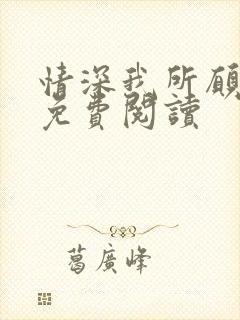 情深我所願
免費閱讀
葛廣峰